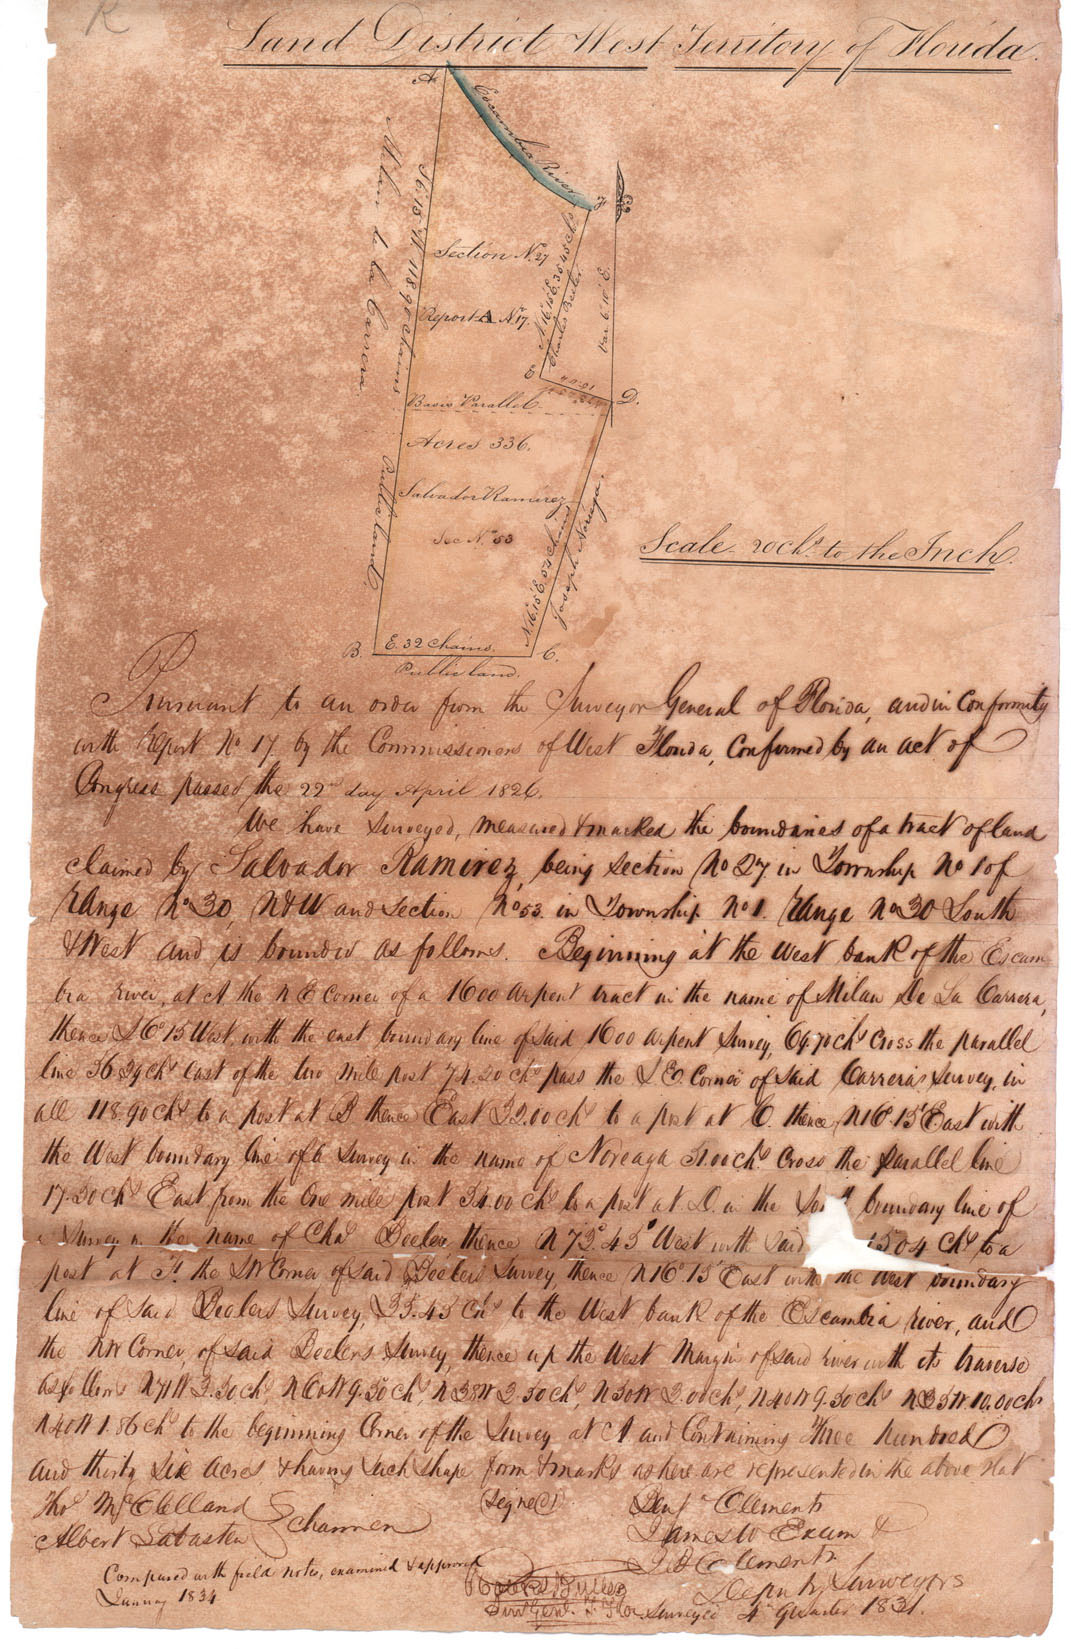 R
Land District West Territory of Florida.
A
Escambia River
F
Milan de la Carrera
S 6° 15' W 118.90 chains
Section No. 27
Report A No. 17.
N 16° 15' E. 35.45 chs
Charles Beeler
Var 6° 10' E.
E
D.
Basis Parallel
Acres 336.
Salvador Ramirez
Sec No. 53
Public land
N 16° 15' E. 54 chains
Joseph Noriega.
Scale 20 chs. to the Inch.
B. E. 32 Chains. C.
Public land.
Pursuant to an order from the Surveyor General of Florida, and in Conformity
with Report No 17, by the Commissioners of West Florida, Confirmed by an act of
Congress passed the 22nd day April 1826.
We have surveyed, measured & marked the boundaries of a tract of land
claimed by Salvador Ramirez, being section No 27 in Township No 1 of
range No 30, N & W and Section No 53. in Township No 1. Range No 30 South
& West and is bounded as follows. Beginning at the West bank of the Escam
bia river, at A the N E Corner of a 1600 arpent tract in the name of Milan De La Carrera,
thence S 6° 15 West, with the east boundary line of said 1600 arpent Survey, 69.70 chs Cross the parallel
line 36.39 chs East of the two mile post 74.20 chs pass the S E Corner of said Carreras Survey, in
all 118.90 chs to a post at B thence East 32.00 chs to a post at C. thence, N 16° 15' East with
the West boundary line of a Survey in the name of Noreaga 51.00 chs Cross the parallel line
17.30 chs East from the One mile post 54.00 chs to a post at D. in the boundary line of
a Survey in the name of Chas Beeler thence N 73° 45' West with said 15.04 Chs to a
post at the SW Corner of said Beelers Survey thence N 16° 15' East with the West boundary
line of said Beelers Survey, 35.45 Chs to the West bank of the Escambia river, and
the NW Corner, of said Beelers Survey, thence up the West Margin of said river with its traverse
as follows N 71 W 3.50 chs, N 60 W 9.50 chs, N 58 W 3.50 chs, N 50 W 3.00 chs, N 40 W 9.50 chs N 35 W 10.00 chs
N 40 W 1.86 chs to the beginning Corner of the Survey at A and Containing Three hundred
and thirty six acres, & having such shape form & marks as here are represented in the above Plat
Thos McClelland
Albert Sabasten
Chainmen
(Signed)
Benj Clements
James W Exum &
Clements
Deputy Surveyors
Compared with field notes, examined & approved
January 1834
Robt Butler
Surv Genl. T. Flo
Surveyed 4th Quarter 1831.